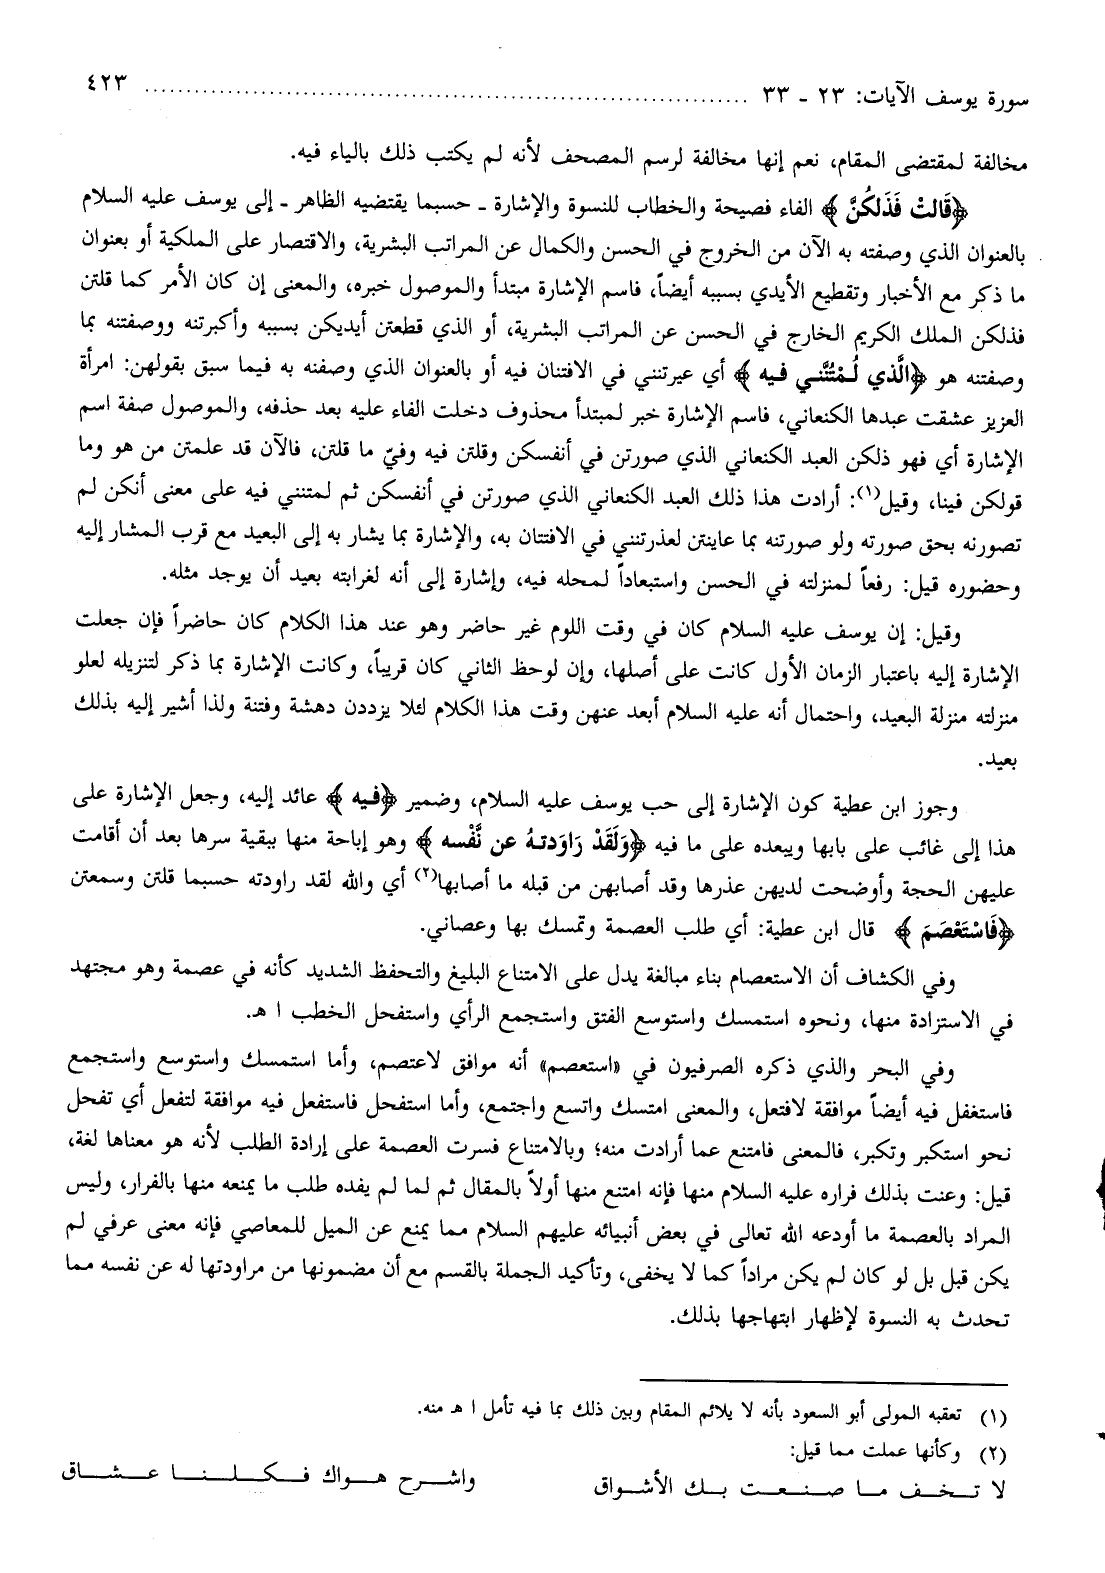 سورة يوسف الآيات: ٢٣ ـ ٣٣ ........................................................................ ٤٢٣
مخالفة لمقتضى المقام، نعم إنها مخالفة لرسم المصحف لأنه لم يكتب ذلك بالياء فيه.
﴿قَالتْ فَذَلكُنَّ﴾ الفاء فصيحة والخطاب للنسوة والإشارة ـ حسبما يقتضيه الظاهر ـ إلى يوسف عليه السلام
بالعنوان الذي وصفته به الآن من الخروج في الحسن والكمال عن المراتب البشرية، والاقتصار على الملكية أو بعنوان
ما ذكر مع الأخبار وتقطيع الأيدي بسببه أيضاً، فاسم الإشارة مبتدأ والموصول خبره، والمعنى إن كان الأمر كما قلتن
فذلكن الملك الكريم الخارج في الحسن عن المراتب البشرية، أو الذي قطعتن أيديكن بسببه وأكبرتنه ووصفتنه بما
وصفتنه هو ﴿الَّذي لُمْتُنَّني فيه﴾ أي عيرتنني في الافتنان فيه أو بالعنوان الذي وصفنه به فيما سبق بقولهن: امرأة
العزيز عشقت عبدها الكنعاني، فاسم الإشارة خبر لمبتدأ محذوف دخلت الفاء عليه بعد حذفه، والموصول صفة اسم
الإشارة أي فهو ذلكن العبد الكنعاني الذي صورتن في أنفسكن وقلتن فيه وفيّ ما قلتن، فالآن قد علمتن من هو وما
قولكن فينا، وقيل(١): أرادت هذا ذلك العبد الكنعاني الذي صورتن في أنفسكن ثم لمتنني فيه على معنى أنكن لم
تصورنه بحق صورته ولو صورتنه بما عاينتن لعذرتنني في الافتتان به، والإشارة بما يشار به إلى البعيد مع قرب المشار إليه
وحضوره قيل: رفعاً لمنزلته في الحسن واستبعاداً لمحله فيه، وإشارة إلى أنه لغرابته بعيد أن يوجد مثله.
وقيل: إن يوسف عليه السلام كان في وقت اللوم غير حاضر وهو عند هذا الكلام كان حاضراً فإن جعلت
الإشارة إليه باعتبار الزمان الأول كانت على أصلها، وإن لوحظ الثاني كان قريباً، وكانت الإشارة بما ذكر لتنزيله لعلو
منزلته منزلة البعيد، واحتمال أنه عليه السلام أبعد عنهن وقت هذا الكلام لئلا يزددن دهشة وفتنة ولذا أشير إليه بذلك
بعيد.
وجوز ابن عطية كون الإشارة إلى حب يوسف عليه السلام، وضمير ﴿فيه﴾ عائد إليه، وجعل الإشارة على
هذا إلى غائب على بابها ويبعده على ما فيه ﴿وَلَقَدْ رَاوَدتهُ عن نَّفْسه﴾ وهو إباحة منها ببقية سرها بعد أن أقامت
عليهن الحجة وأوضحت لديهن عذرها وقد أصابهن من قبله ما أصابها(٢) أي والله لقد راودته حسبما قلتن وسمعتن
﴿فَاسْتَعْصَمَ﴾ قال ابن عطية: أي طلب العصمة وتمسك بها وعصاني.
وفي الكشاف أن الاستعصام بناء مبالغة يدل على الامتناع البليغ والتحفظ الشديد كأنه في عصمة وهو مجتهد
في الاستزادة منها، ونحوه استمسك واستوسع الفتق واستجمع الرأي واستفحل الخطب ا هـ.
وفي البحر والذي ذكره الصرفيون في «استعصم» أنه موافق لاعتصم، وأما استمسك واستوسع واستجمع
فاستغفل فيه أيضاً موافقة لافتعل، والمعنى امتسك واتسع واجتمع، وأما استفحل فاستفعل فيه موافقة لتفعل أي تفحل
نحو استكبر وتكبر، فالمعنى فامتنع عما أرادت منه؛ وبالامتناع فسرت العصمة على إرادة الطلب لأنه هو معناها لغة،
قيل: وعنت بذلك فراره عليه السلام منها فإنه امتنع منها أولاً بالمقال ثم لما لم يفده طلب ما يمنعه منها بالفرار، وليس
المراد بالعصمة ما أودعه الله تعالى في بعض أنبيائه عليهم السلام مما يمنع عن الميل للمعاصي فإنه معنى عرفي لم
يكن قبل بل لو كان لم يكن مراداً كما لا يخفى، وتأكيد الجملة بالقسم مع أن مضمونها من مراودتها له عن نفسه مما
تحدث به النسوة لإظهار ابتهاجها بذلك.
(١) تعقبه المولى أبو السعود بأنه لا يلائم المقام وبين ذلك بما فيه تأمل ا هـ منه.
(٢) وكأنها عملت مما قيل:
لا تـخـف مـا صـنـعـت بـك الأشـواق واشـرح هـواك فـكـلـنـا عـشـاق